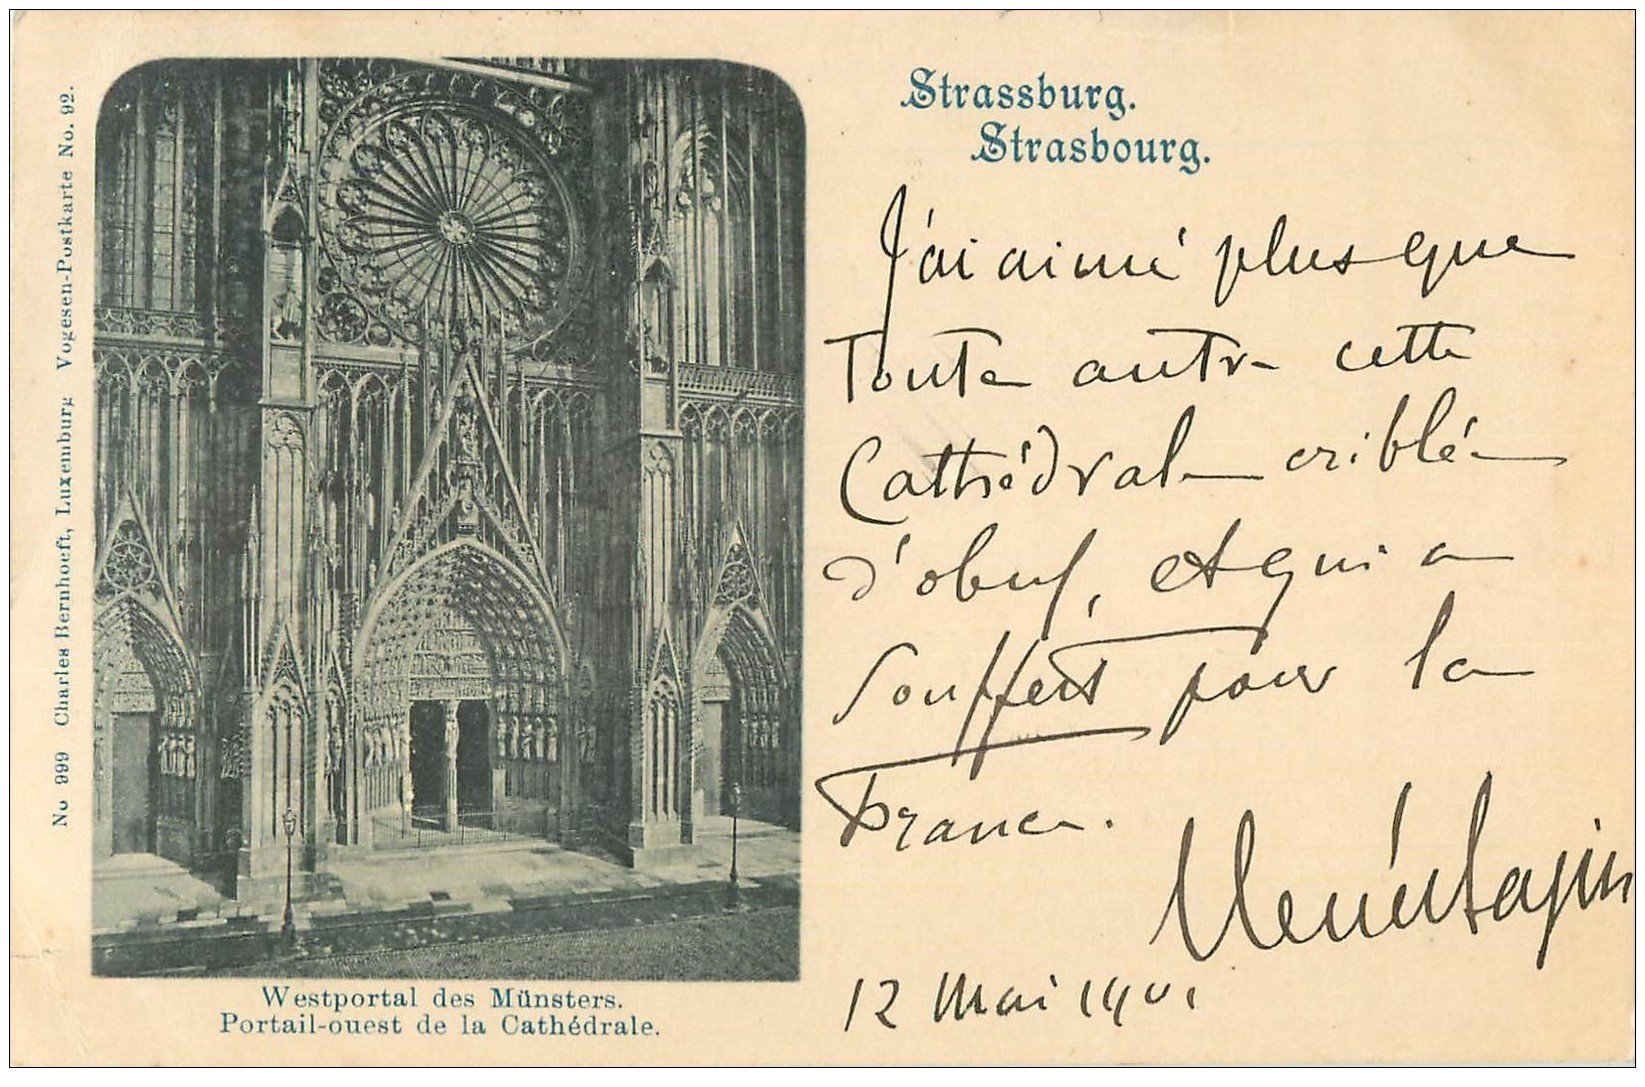 No 999 Charles Bernhoeft, Luxemburg Vogesen-Postkarte No. 92.
Strassburg.
Strasbourg.
J'ai aimé plus que
Toute autre cette
Cathédrale criblée
d'obus, et qui a
souffert pour la
France.
12 Mai 1901
Westportal des Münsters.
Portail-ouest de la Cathédrale.